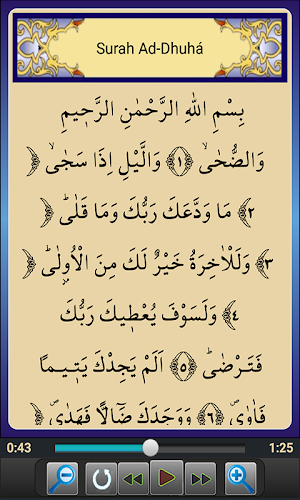 Surah Ad-Dhuhá
بِسْمِ اللّٰهِ الرَّحْمٰنِ الرَّحِيْمِ
وَالضُّحٰىۙ ﴿١﴾ وَالَّيْلِ اِذَا سَجٰىۙ ﴿
٢﴾ مَا وَدَّعَكَ رَبُّكَ وَمَا قَلٰىؕ ﴿
٣﴾ وَلَلْاٰخِرَةُ خَيْرٌ لَّكَ مِنَ الْاُوْلٰىؕ ﴿
٤﴾ وَلَسَوْفَ يُعْطِيْكَ رَبُّكَ
فَتَرْضٰىؕ ﴿٥﴾ اَلَمْ يَجِدْكَ يَتِيْمًا
فَاٰوٰى ﴿٦﴾ وَوَجَدَكَ ضَآلًّا فَهَدٰى ﴿
0:43 1:25